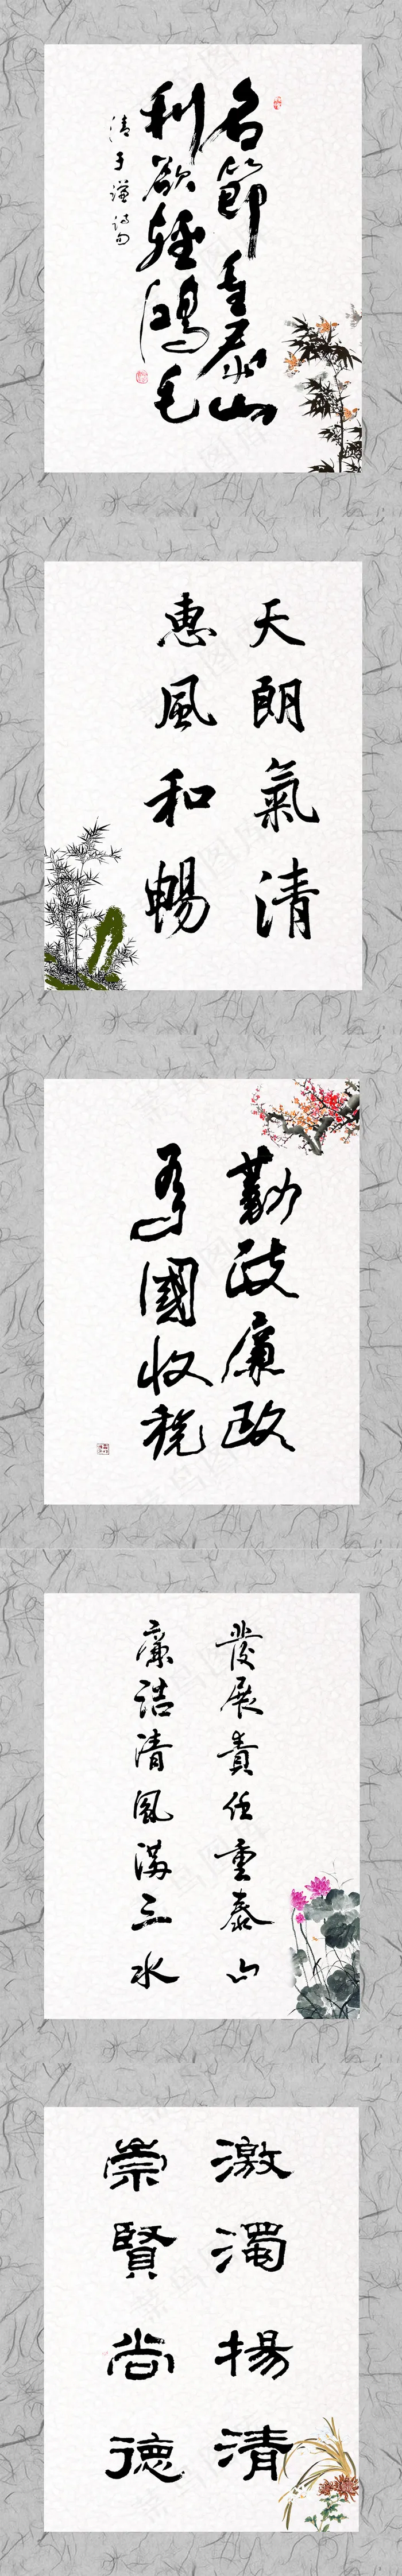 名節重泰山
利欲輕鴻毛
清于謙詩句
天朗氣清
惠風和暢
勤政廉政
為國收稅
發展責任重泰山
廉洁清風满三水
激濁揚清
崇賢尚德